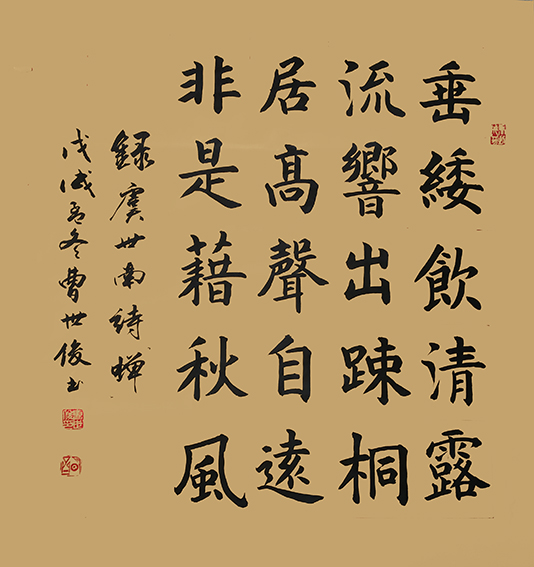 垂緌飲清露
流響出踈桐
居髙聲自遠
非是藉秋風
錄虞世南詩蟬
戊戌孟冬曹世俊书